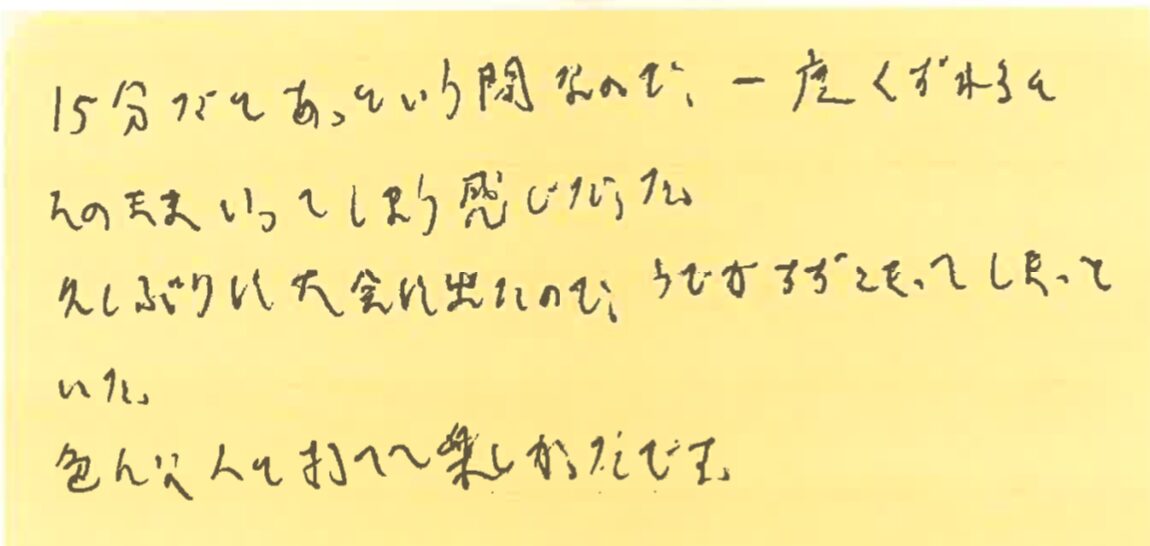 15分だとあっという間なので、一度くずれると
そのままいってしまう感じだった。
久しぶりに大会に出たので、うでがすずこまってしまって
いた。
色んな人と打てて楽しかったです。